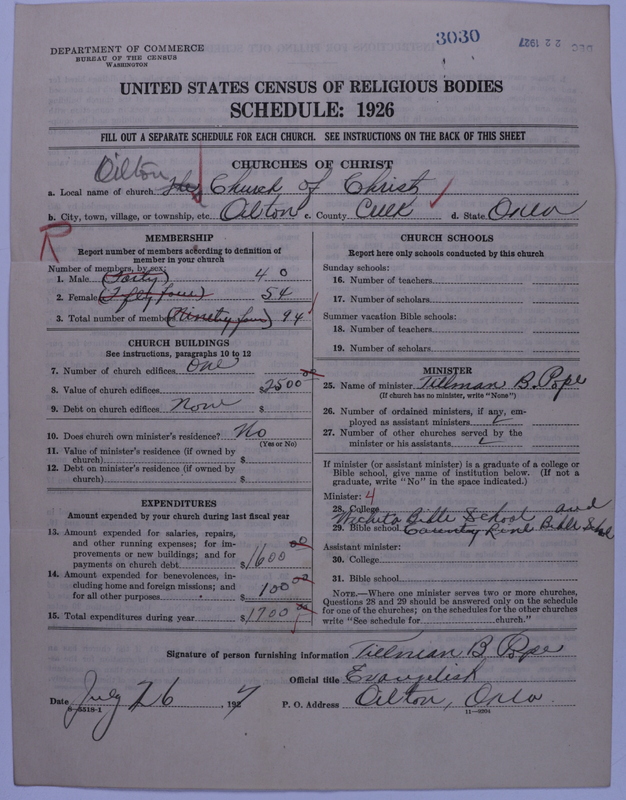 3030
DEC 22 1927
DEPARTMENT OF COMMERCE
BUREAU OF THE CENSUS
WASHINGTON
UNITED STATES CENSUS OF RELIGIOUS BODIES
SCHEDULE: 1926
FILL OUT A SEPARATE SCHEDULE FOR EACH CHURCH. SEE INSTRUCTIONS ON THE BACK OF THIS SHEET
CHURCHES OF CHRIST
Oilton
a. Local name of church The Church of Christ
b. City, town, village, or township, etc. Oilton c. County Creek d. State Okla
R
MEMBERSHIP
Report number of members according to definition of
member in your church
Number of members, by sex:
1. Male (Forty) 40
2. Female (Fifty four) 54
3. Total number of members (Ninety four) 94
CHURCH BUILDINGS
See instructions, paragraphs 10 to 12
7. Number of church edifices One
8. Value of church edifices $2500 00
9. Debt on church edifices None $
10. Does church own minister's residence? No
(Yes or No)
11. Value of minister's residence (if owned by
church) $
12. Debt on minister's residence (if owned by
church) $
EXPENDITURES
Amount expended by your church during last fiscal year
13. Amount expended for salaries, repairs,
and other running expenses; for im-
provements or new buildings; and for
payments on church debt $1600 00
14. Amount expended for benevolences, in-
cluding home and foreign missions; and
for all other purposes 100 00
15. Total expenditures during year $1700 00
CHURCH SCHOOLS
Report here only schools conducted by this church
Sunday schools:
16. Number of teachers
17. Number of scholars
Summer vacation Bible schools:
18. Number of teachers
19. Number of scholars
MINISTER
25. Name of minister Tillman B. Pope
(If church has no minister, write "None")
26. Number of ordained ministers, if any, em-
ployed as assistant ministers
27. Number of other churches served by the
minister or his assistants
If minister (or assistant minister) is a graduate of a college or
Bible school, give name of institution below. (If not a
graduate, write "No" in the space indicated.)
Minister: 4
28. College
Wichita Bible School and
29. Bible school County Line Bible School
Assistant minister:
30. College
31. Bible school
NOTE.—Where one minister serves two or more churches,
Questions 28 and 29 should be answered only on the schedule
for one of the churches; on the schedules for the other churches
write "See schedule for church."
Signature of person furnishing information Tillman B. Pope
Official title Evangelist
Date July 26, 1927 P. O. Address Oilton, Okla.
8—5518-1 11—9204